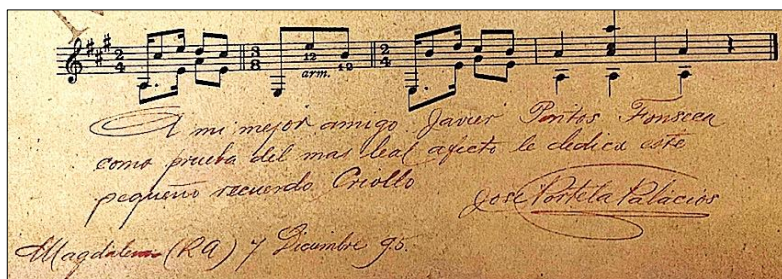 2 4 3 8 12 arm. 12 2 4
A mi mejor amigo Javier Pintos Fonseca
como prueba del mas leal afecto le dedica este
pequeño recuerdo Criollo
José Portela Palacios
Magdalena (RA) 7 Diciembre 95.